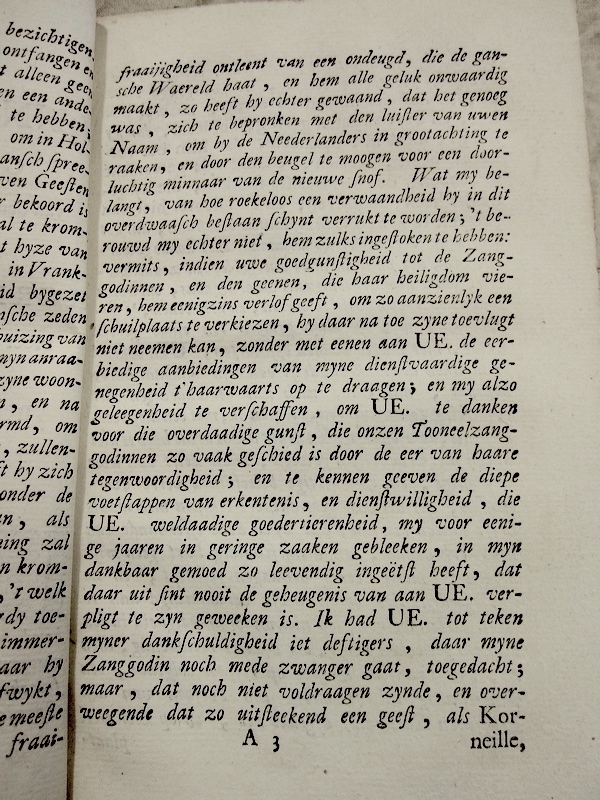 bezichtigen,
ontfangen en
t alleen geen
en een ande-
te hebben;
om in Hol-
ansch spree-
ven Geesten
r bekoord is
al te krom-
t hyze van
in Vrank-
id bygezet
nsche zeden
huizing van
myn anraa-
zyne woon-
n, en na
rmd, om
, zullen-
ft hy zich
onder de
an, als
ning zal
n krom-
,'t welk
rdy toe-
immer-
aar hy
fwykt,
e meeste
fraai-
fraaijigheid ontleent van een ondeugd, die de gan-
sche Waereld haat, en hem alle geluk onwaardig
maakt, zo heeft hy echter gewaand, dat het genoeg
was, zich te bepronken met den luister van uwen
Naam, om by de Neederlanders in grootachting te
raaken, en door den beugel te moogen voor een door-
luchtig minnaar van de nieuwe snof. Wat my be-
langt, van hoe roekeloos een verwaandheid hy in dit
overdwaasch bestaan schynt verrukt te worden; 't be-
rouwd my echter niet, hem zulks ingestoken te hebben:
vermits, indien uwe goedgunstigheid tot de Zang-
godinnen, en den geenen, die haar heiligdom vie-
ren, hem eenigzins verlof geeft, om zo aanzienlyk een
schuilplaats te verkiezen, hy daar na toe zyne toevlugt
niet neemen kan, zonder met eenen aan UE. de eer-
biedige aanbiedingen van myne dienstvaardige ge-
negenheid t'haarwaarts op te draagen; en my alzo
geleegenheid te verschaffen, om UE. te danken
voor die overdaadige gunst, die onzen Tooneelzang-
godinnen zo vaak geschied is door de eer van haare
tegenwoordigheid; en te kennen geeven de diepe
voetstappen van erkentenis, en dienstwilligheid, die
UE. weldaadige goedertierenheid, my voor eeni-
ge jaaren in geringe zaaken gebleeken, in myn
dankbaar gemoed zo leevendig ingeëtst heeft, dat
daar uit sint nooit de geheugenis van aan UE. ver-
pligt te zyn geweeken is. Ik had UE. tot teken
myner dankschuldigheid iet deftigers, daar myne
Zanggodin noch mede zwanger gaat, toegedacht;
maar, dat noch niet voldraagen zynde, en over-
weegende dat zo uitsteekend een geest, als Kor-
A 3 neille,